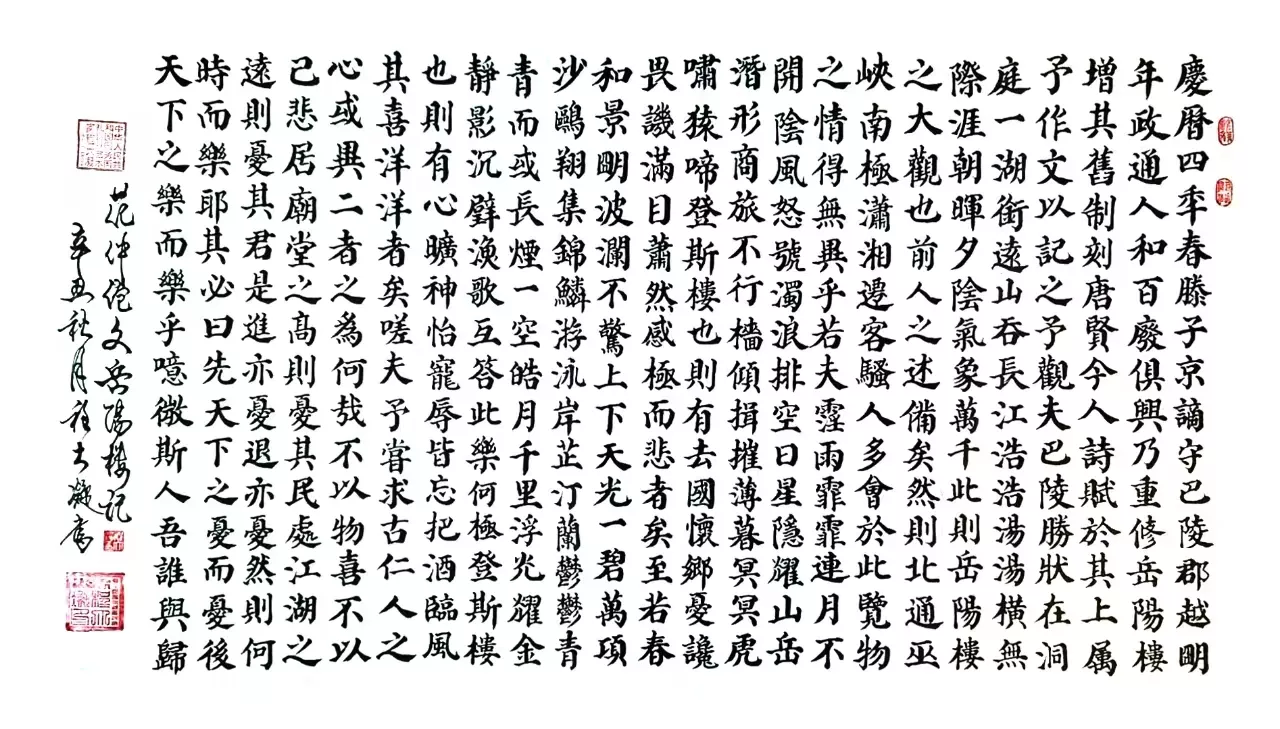 慶曆四年春滕子京謫守巴陵郡越明
年政通人和百廢俱興乃重修岳陽樓
增其舊制刻唐賢今人詩賦於其上属
予作文以記之予觀夫巴陵勝狀在洞
庭一湖銜遠山吞長江浩浩湯湯橫無
際涯朝暉夕陰氣象萬千此則岳陽樓
之大觀也前人之述備矣然則北通巫
峽南極瀟湘遷客騷人多會於此覽物
之情得無異乎若夫霪雨霏霏連月不
開陰風怒號濁浪排空日星隱耀山岳
潛形商旅不行檣傾揖摧薄暮冥冥虎
嘯猿啼登斯樓也則有去國懷鄉憂讒
畏譏滿目蕭然感極而悲者矣至若春
和景明波瀾不驚上下天光一碧萬頃
沙鷗翔集錦鱗游泳岸芷汀蘭鬱鬱青
青而或長煙一空皓月千里浮光耀金
靜影沉璧漁歌互答此樂何極登斯樓
也則有心曠神怡寵辱皆忘把酒臨風
其喜洋洋者矣嗟夫予嘗求古仁人之
心或異二者之為何哉不以物喜不以
己悲居廟堂之高則憂其民處江湖之
遠則憂其君是進亦憂退亦憂然則何
時而樂耶其必曰先天下之憂而憂後
天下之樂而樂乎噫微斯人吾誰與歸
范仲淹文岳陽樓记
辛丑秋月